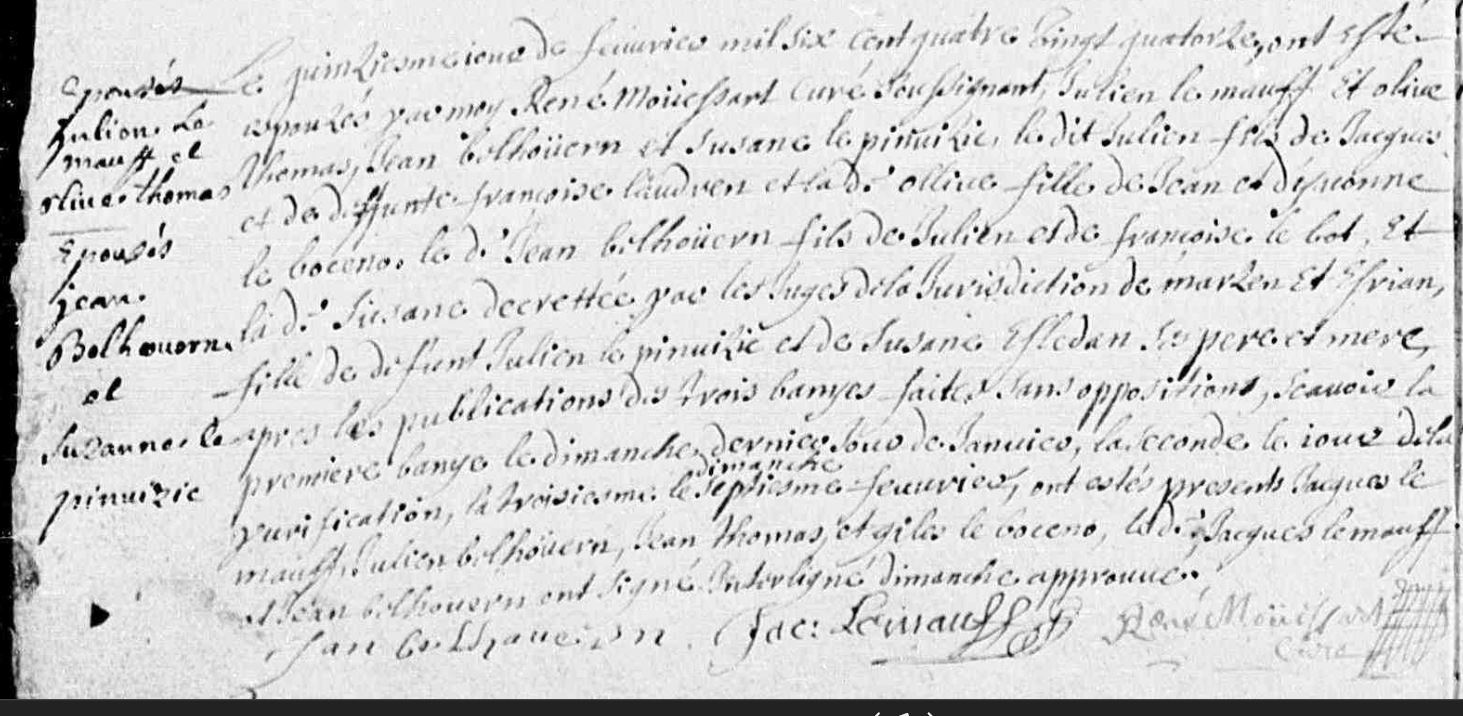 Epousés
Julien Le
mauff et
olive thomas
Epousés
jean
Bolhouorn
et
Suzanne le
pinuizic
Le quinziesme iour de feuurier mil six cent quatre vingt quatorze, ont esté
espouzés par moy René Moüessart Curé soussignant, Julien le mauff Et oliue
thomas, Jean bolhoüern et Susane le pinuizic, le dit Julien fils de Jacques
et de deffunte francoise laudren et la d.e olliue fille de Jean et d'yuonne
le boceno, le d.t Jean bolhoüern fils de Julien et de francoise le bot, Et
la d.e Susane decrettée par les Juges de la Jurisdiction de marzen Et Esrian,
fille de defunt Julien le pinuizic et de Susane Esledan ses pere et mere,
apres les publications des trois banyes faites sans oppositions, scauoir la
premiere banye le dimanche dernier Jour de Januier, la seconde le iour de la
purification, la troisiesme le dimanche septiesme feuurier, ont estés presents Jacques le
mauff, Julien bolhoüern, Jean thomas, et giles le boceno, le d.t Jacques le mauff
et Jean bolhouern ont signé Interligne dimanche approuué.
Jan bolhouern Jac: Le mauff René Moüessart
Curé